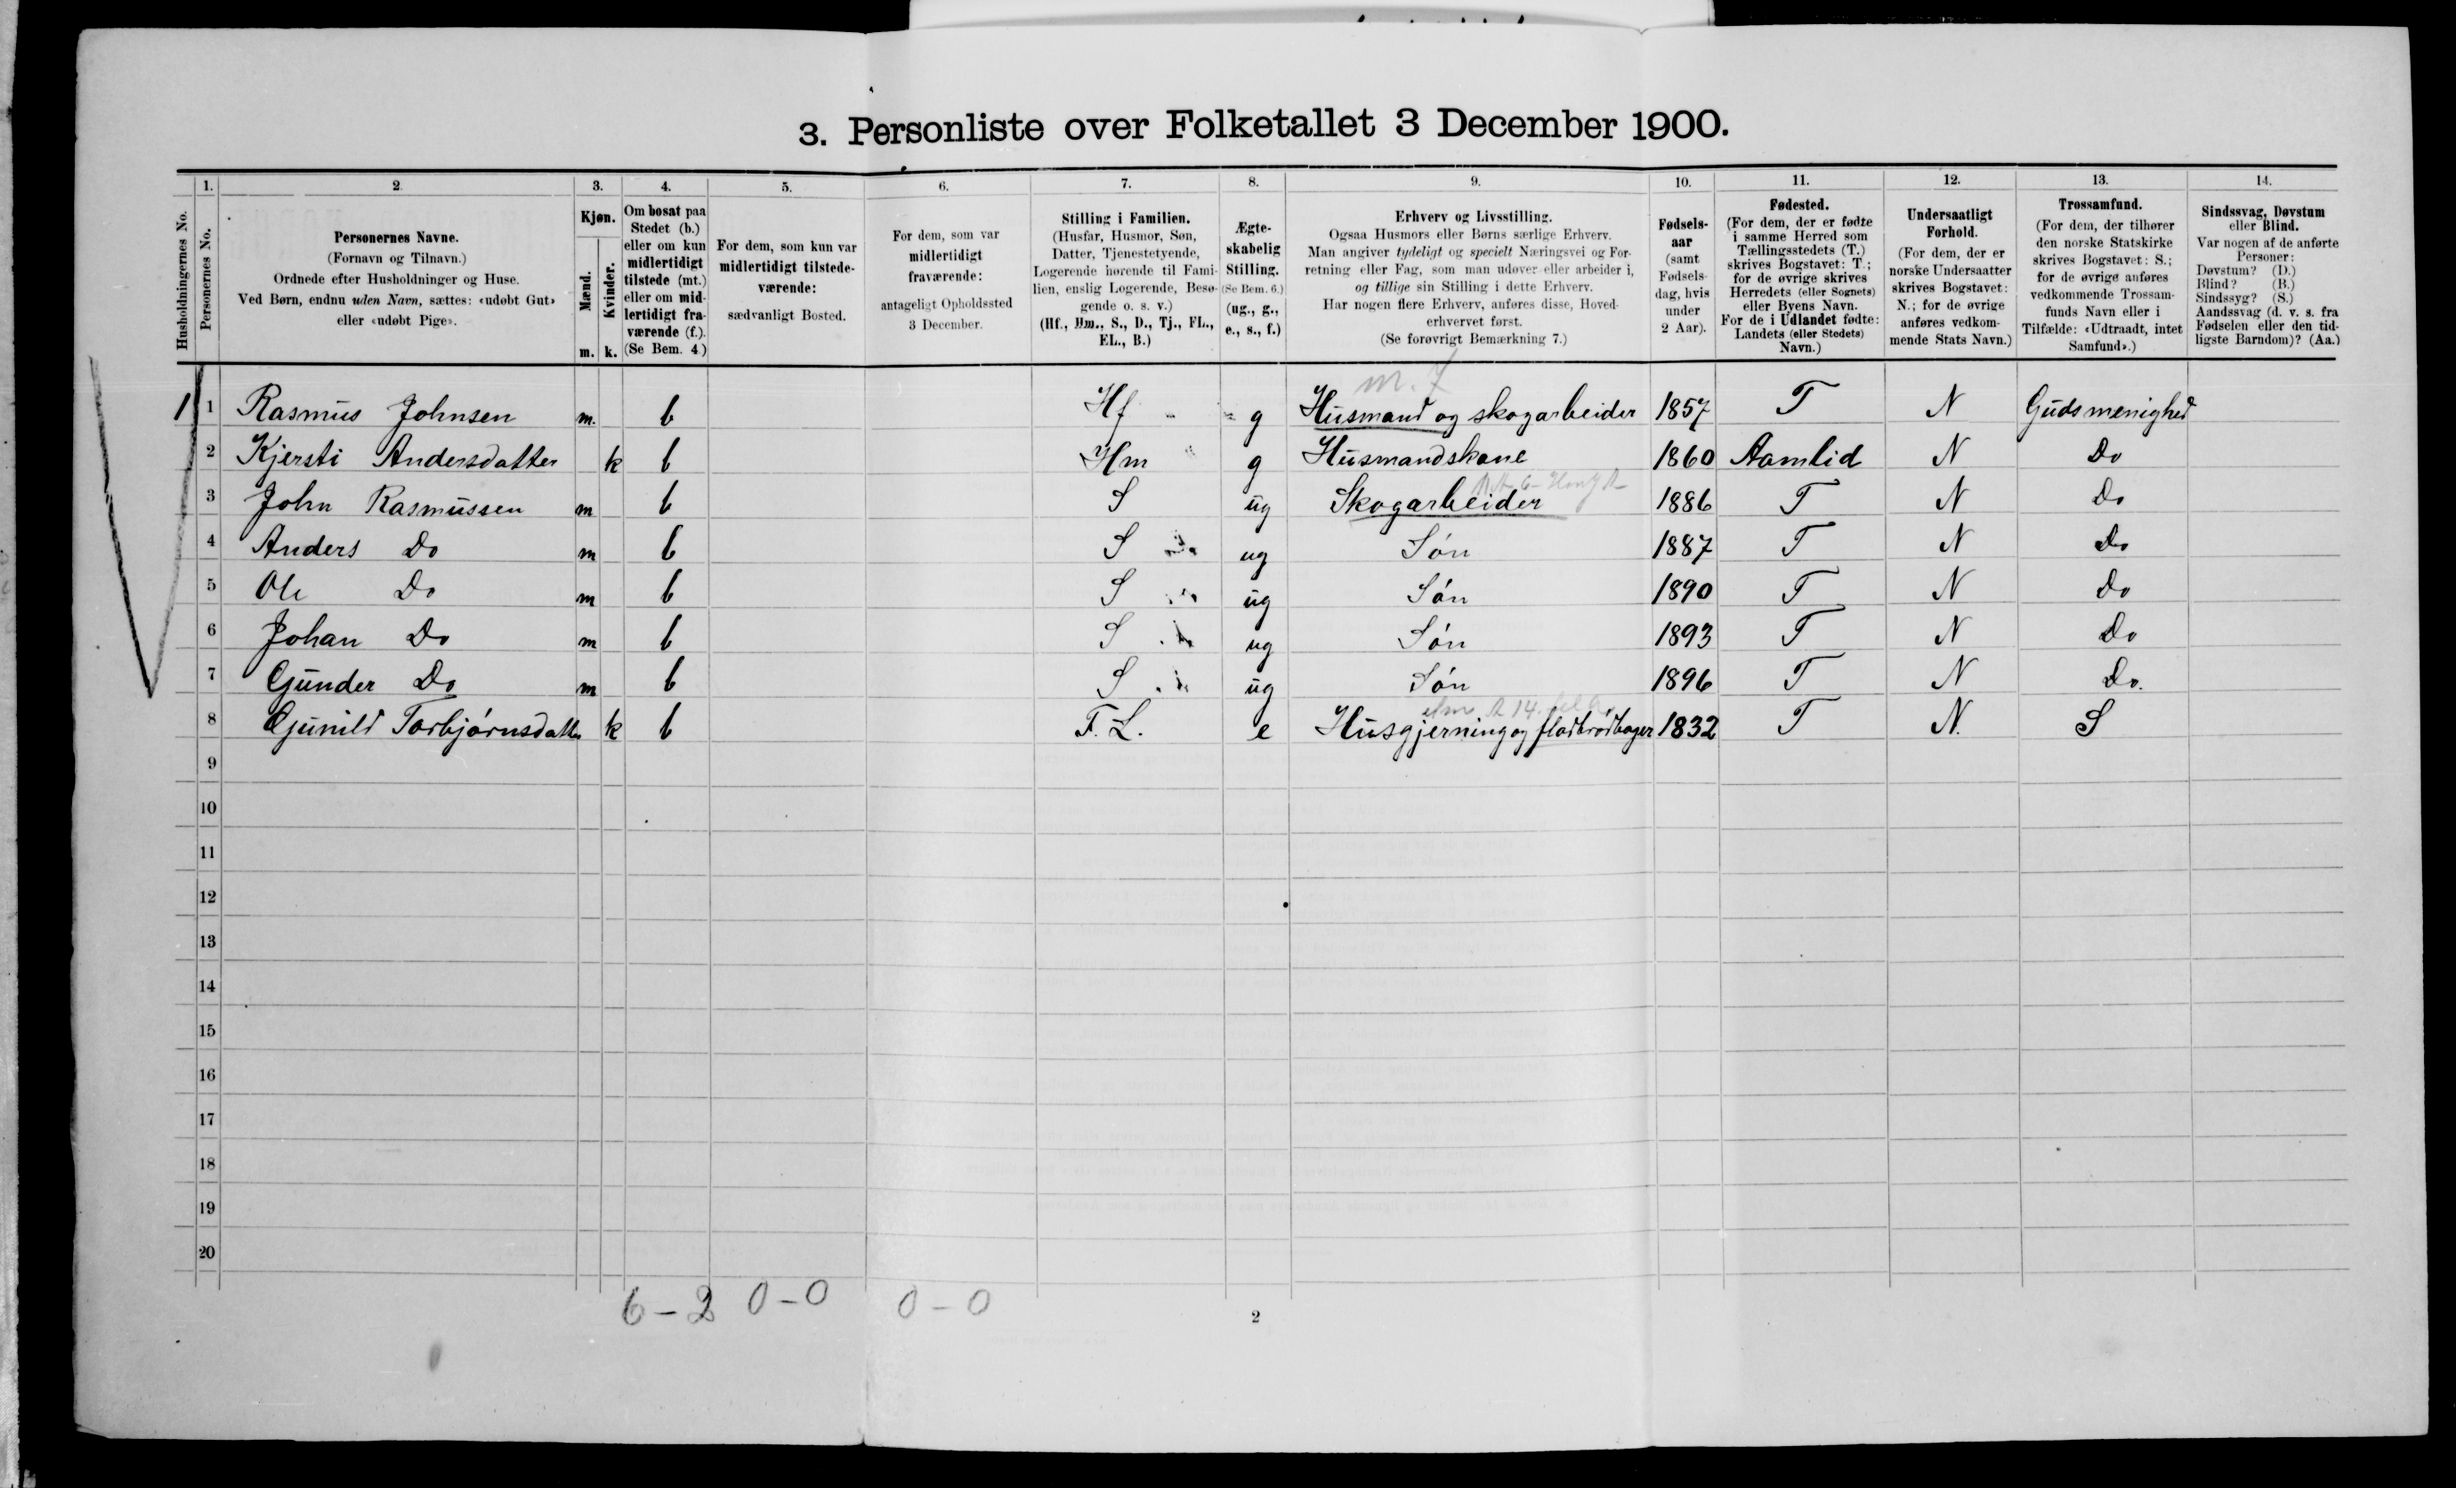 3. Personliste over Folketallet 3 December 1900.
1. 2. 3. 4. 5. 6. 7. 8. 9. 10. 11. 12. 13. 14.
Husholdningernes No.
Personernes No.
Personernes Navne.
(Fornavn og Tilnavn.)
Ordnede efter Husholdninger og Huse.
Ved Børn, endnu uden Navn, sættes: «udøbt Gut»
eller «udøbt Pige».
Kjøn.
Mænd.
Kvinder.
m. k.
Om bosat paa
Stedet (b.)
eller om kun
midlertidigt
tilstede (mt.)
eller om mid-
lertidigt fra-
værende (f.).
(Se Bem. 4.)
For dem, som kun var
midlertidigt tilstede-
værende:
sædvanligt Bosted.
For dem, som var
midlertidigt
fraværende:
antageligt Opholdssted
3 December.
Stilling i Familien.
(Husfar, Husmor, Søn,
Datter, Tjenestetyende,
Logerende hørende til Fami-
lien, enslig Logerende, Besø-
gende o. s. v.)
(Hf., Hm., S., D., Tj., FL.,
EL., B.)
Ægte-
skabelig
Stilling.
(Se Bem. 6.)
(ug., g.,
e., s., f.)
Erhverv og Livsstilling.
Ogsaa Husmors eller Børns særlige Erhverv.
Man angiver tydeligt og specielt Næringsvei og For-
retning eller Fag, som man udøver eller arbeider i,
og tillige sin Stilling i dette Erhverv.
Har nogen flere Erhverv, anføres disse, Hoved-
erhvervet først.
(Se forøvrigt Bemærkning 7.)
Fødsels-
aar
(samt
Fødsels-
dag, hvis
under
2 Aar).
Fødested.
(For dem, der er fødte
i samme Herred som
Tællingsstedets (T.)
skrives Bogstavet: T.;
for de øvrige skrives
Herredets (eller Sognets)
eller Byens Navn.
For de i Udlandet fødte:
Landets (eller Stedets)
Navn.)
Undersaatligt
Forhold.
(For dem, der er
norske Undersaatter
skrives Bogstavet:
N.; for de øvrige
anføres vedkom-
mende Stats Navn.)
Trossamfund.
(For dem, der tilhører
den norske Statskirke
skrives Bogstavet: S.;
for de øvrige anføres
vedkommende Trossam-
funds Navn eller i
Tilfælde: «Udtraadt, intet
Samfund».)
Sindssvag, Døvstum
eller Blind.
Var nogen af de anførte
Personer:
Døvstum? (D.)
Blind? (B.)
Sindssyg? (S.)
Aandssvag (d. v. s. fra
Fødselen eller den tid-
ligste Barndom)? (Aa.)
m. 7
1 1 Rasmus Johnsen m. b Hf g Husmand og skogarbeider 1857 T N Gudsmenighed
2 Kjersti Andersdatter k b Hm g Husmandskone 1860 Aamlid N Do
3 John Rasmussen m b S ug Skogarbeider 1886 T N Do
4 Anders Do m b S ug Søn 1887 T N Do
5 Ole Do m b S ug Søn 1890 T N Do
6 Johan Do m b S ug Søn 1893 T N Do
7 Gunder Do m b S ug Søn 1896 T N Do.
8 Gunild Torbjørnsdatter k b F. L. e Husgjerning og fladbrødbager 1832 T N. S
9
10
11
12
13
14
15
16
17
18
19
20
6 - 2 0 - 0 0 - 0
2